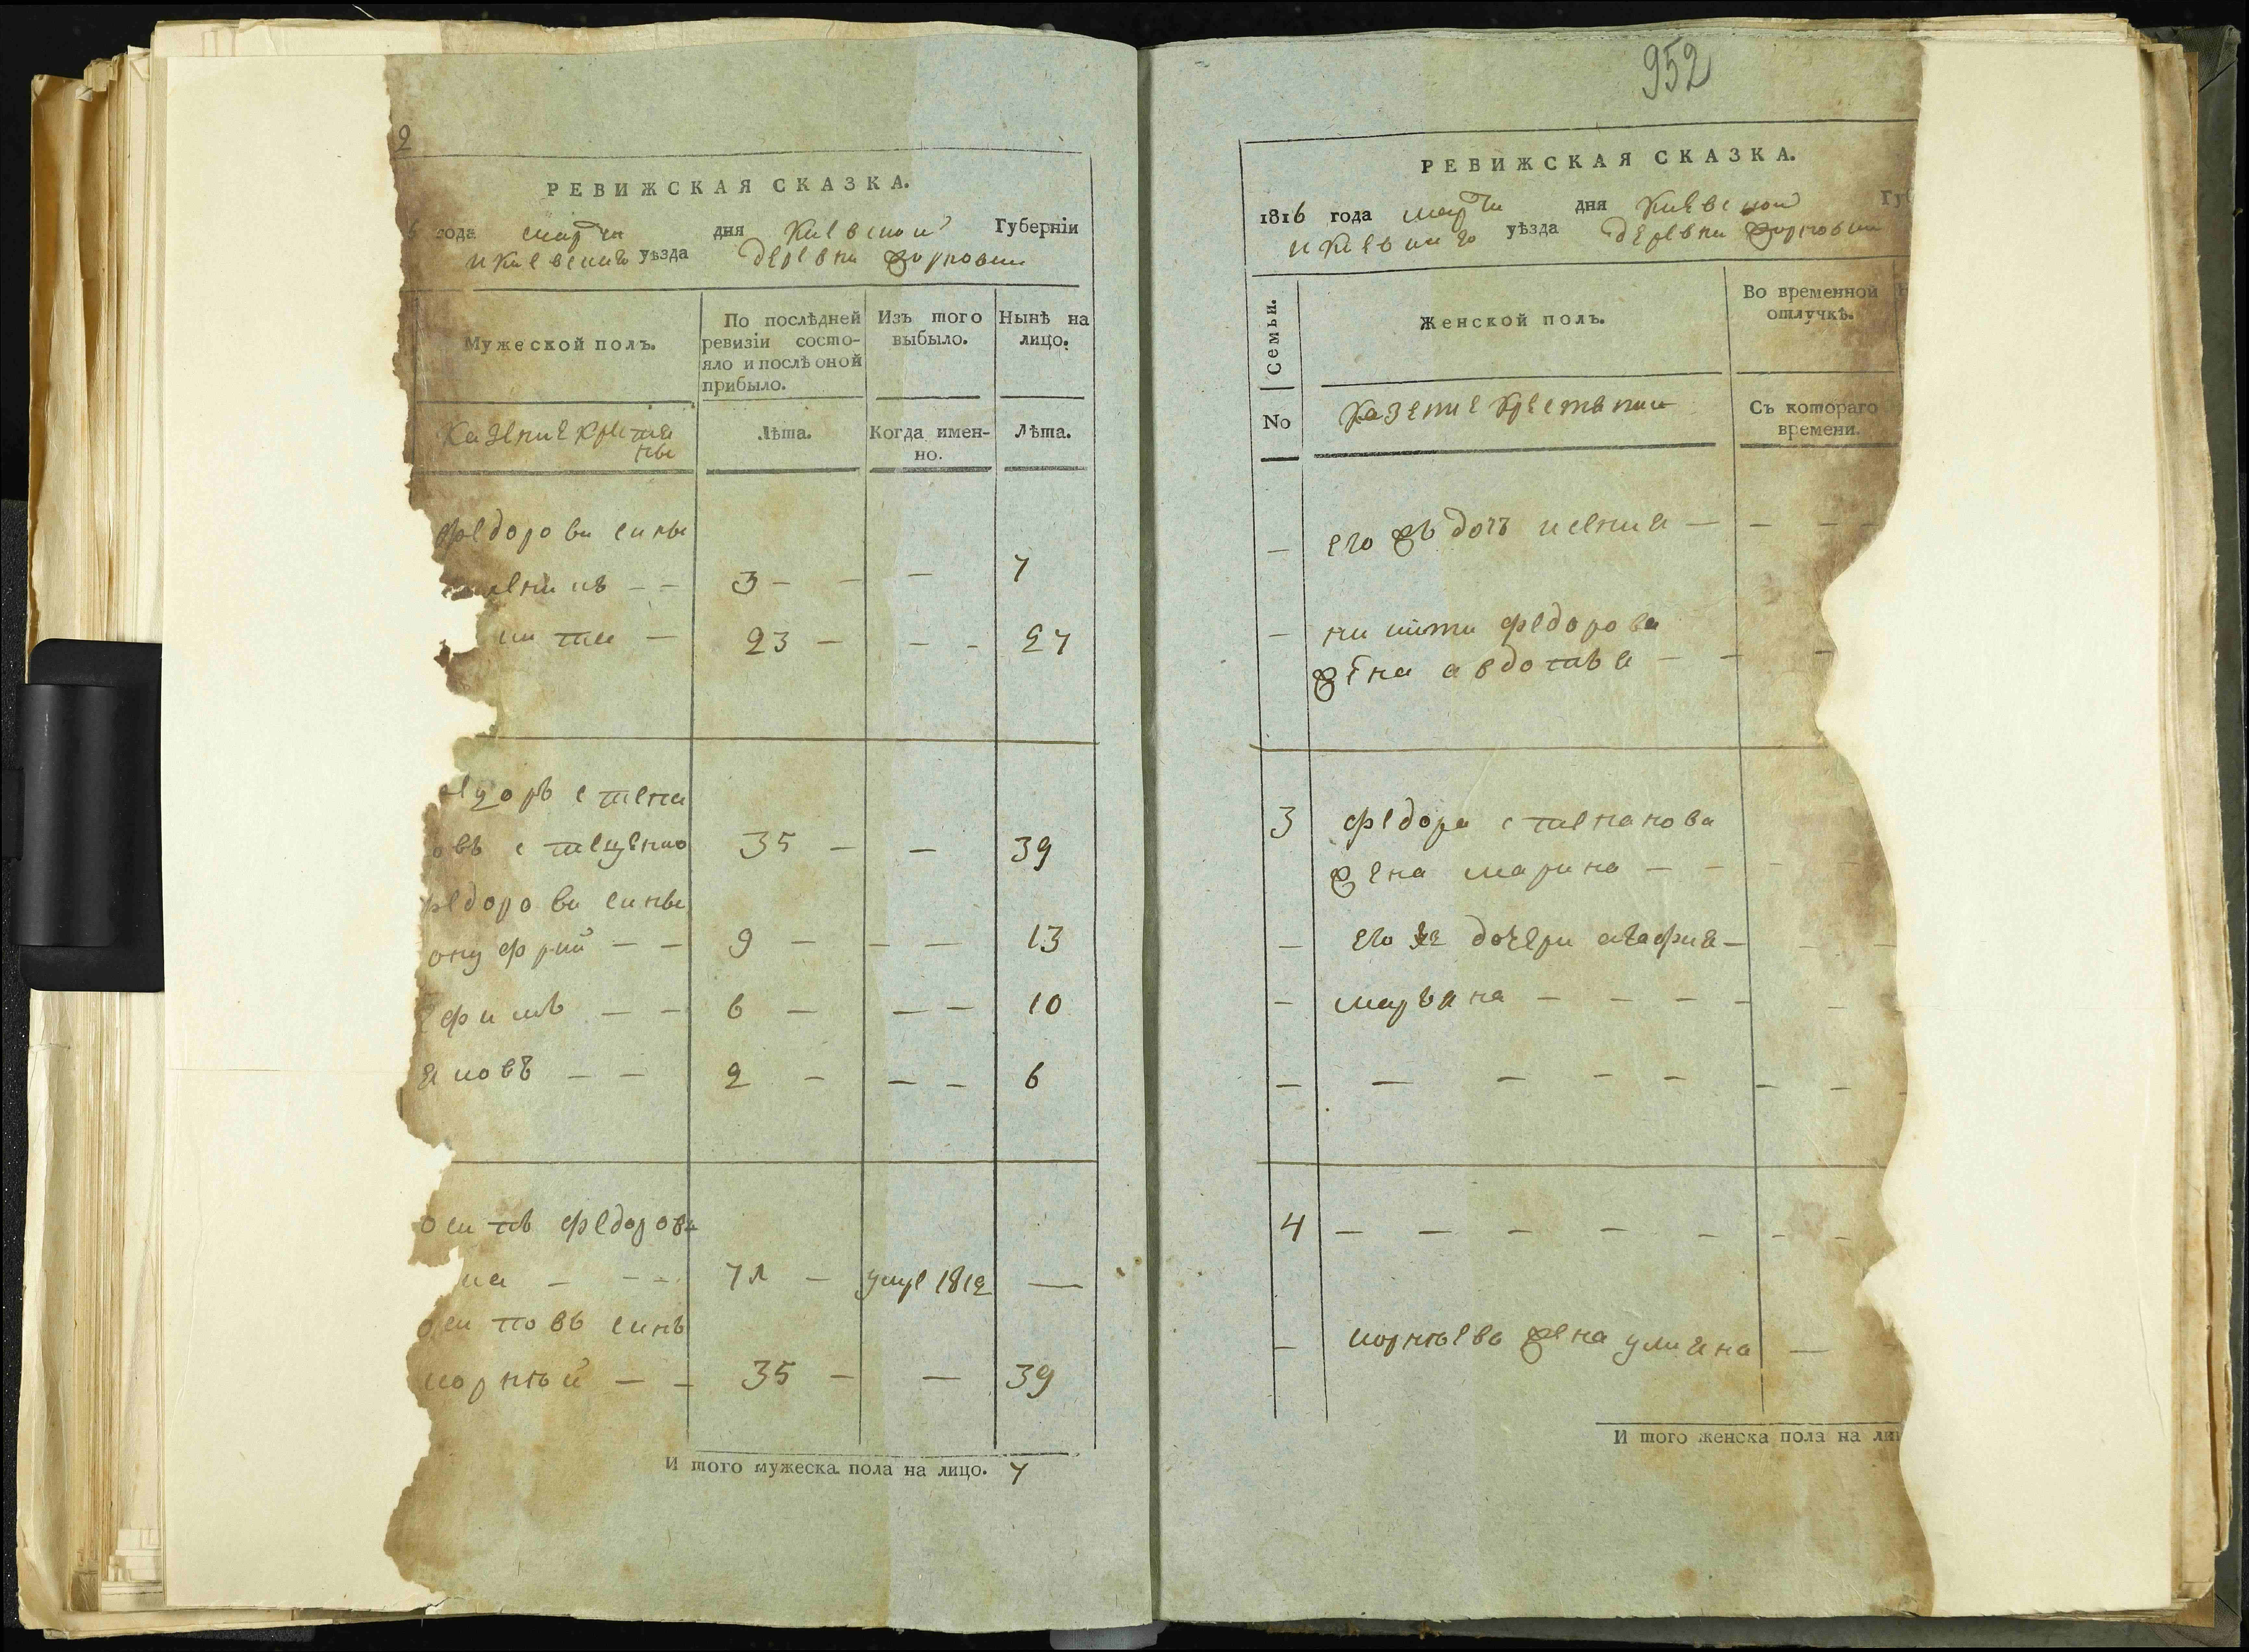 2
РЕВИЖСКАЯ СКАЗКА.
6 года марта дня Киевской Губерніи
и Киевскаго уѣзда деревни
Мужеской полъ.
По послѣдней ревизіи состо-
яло и послѣ оной
прибыло.
Изъ того
выбыло.
Нынѣ на
лицо.
Казение крестя
не
Лѣта.
Когда имен-
но.
Лѣта.
федорови сини
3 - - - 7
кита - 23 - - - 27
степа
овъ 35 - - 39
федорови сини
онуфрий - - 9 - - - 13
ефимъ - - 6 - - - 10
яковъ - - 2 - - - 6
осипъ федорови
ка - - - 7л - умре 1812 -
осиповъ синъ
корнѣй - - 35 - - 39
И того мужеска пола на лицо. 7
952
РЕВИЖСКАЯ СКАЗКА.
1816 года марта дня Киевской Губ
и Киевскаго уѣзда деревни
Семьи.
Женской полъ.
Во временной
отлучкѣ.
No
Казение крестяни
Съ котораго
времени.
- его жъ дочъ ксения - - - -
- никити федорова
жена авдотъя - - -
3 федора степанова
жена марина - - - -
- его же дочери агафия - - -
- маръяна - - - - -
- - - - - - -
4 - - - - - - -
- корнѣева жена улияна -
И того женска пола на ли